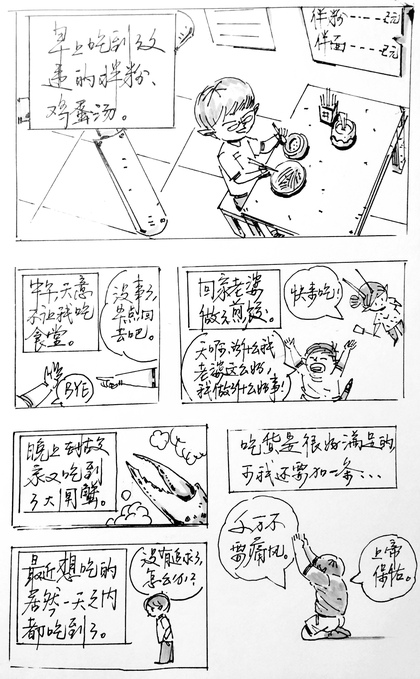 早上吃到双
递的拌粉、
鸡蛋汤。
拌粉----2元
拌面---2元
中午天意
不让我吃
食堂。
没事了,
早点回
去吧。
BYE
回家老婆
做了煎饺。
快来吃!
天啊,为什么我
老婆这么好,
我做什么好事!
晚上到
家又吃到
了大闸蟹。
最近想吃的
居然一天之内
都吃到了。
没有追求了,
怎么办?
吃货是很好满足的,
不我还需加一条...
千万不
要痛风。
上帝
保佑。